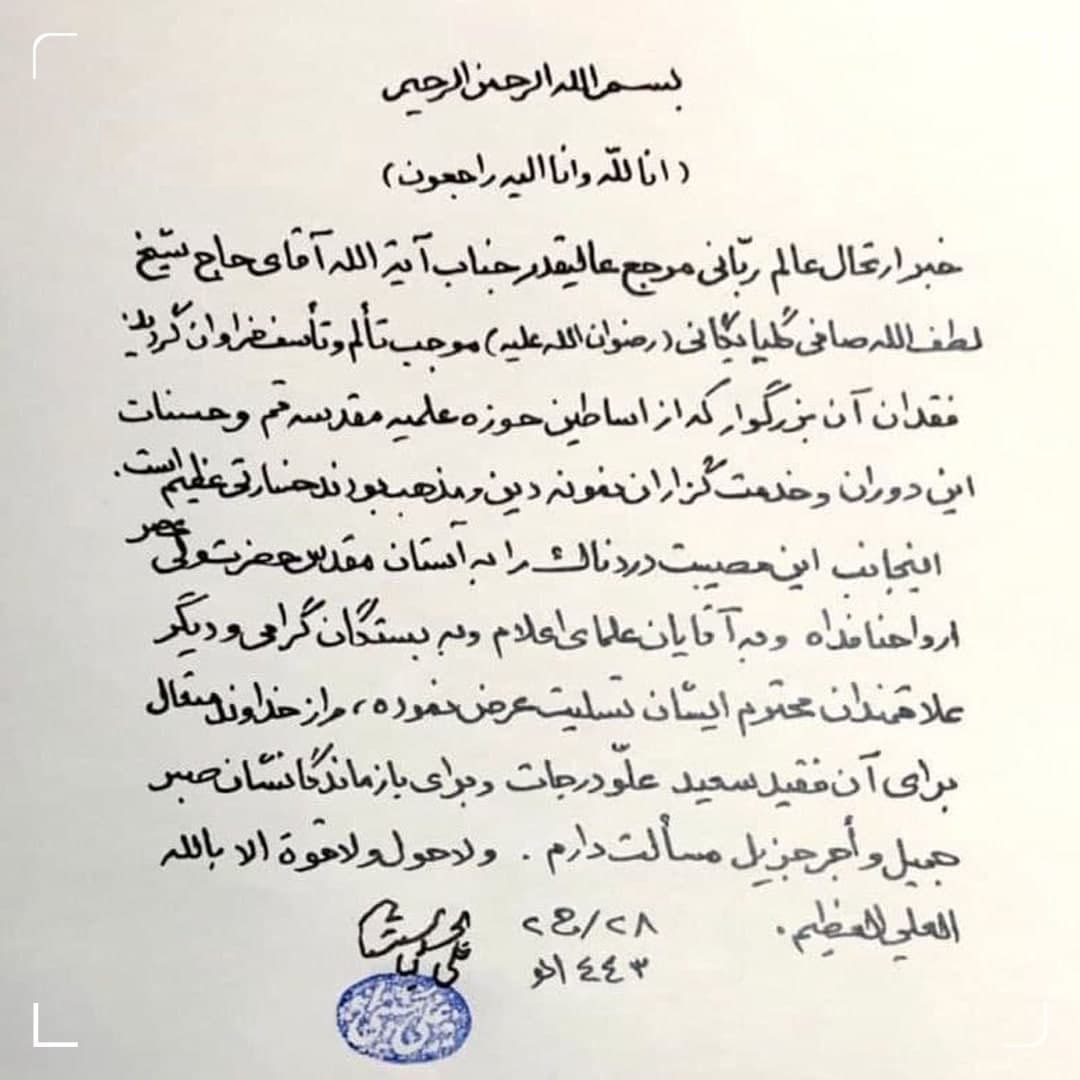 بسم الله الرحمن الرحیم
(انا لله وانا الیه راجعون)
خبر ارتحال عالم ربّانی مرجع عالیقدر جناب آیة الله آقای حاج شیخ
لطف الله صافی گلپایگانی (رضوان الله علیه) موجب تألم و تأسف فراوان گردید
فقدان آن بزرگوار که از اساطین حوزه علمیه مقدسه قم و حسنات
این دوران و خدمت گزاران نمونه دین و مذهب بودند خسارتی عظیم است.
اینجانب این مصیبت دردناک را به آستان مقدس حضرت ولی عصر
ارواحنا فداه و به آقایان علمای اعلام و به بستگان گرامی و دیگر
علاقمندان محترم ایشان تسلیت عرض نموده، و از خداوند متعال
برای آن فقید سعید علّو درجات و برای بازماندگانشان صبر
جمیل و أجر جزیل مسألت دارم. ولا حول ولا قوة الا بالله
العلي العظیم.
٢٨/ج٢
١٤٤٣هـ
علی